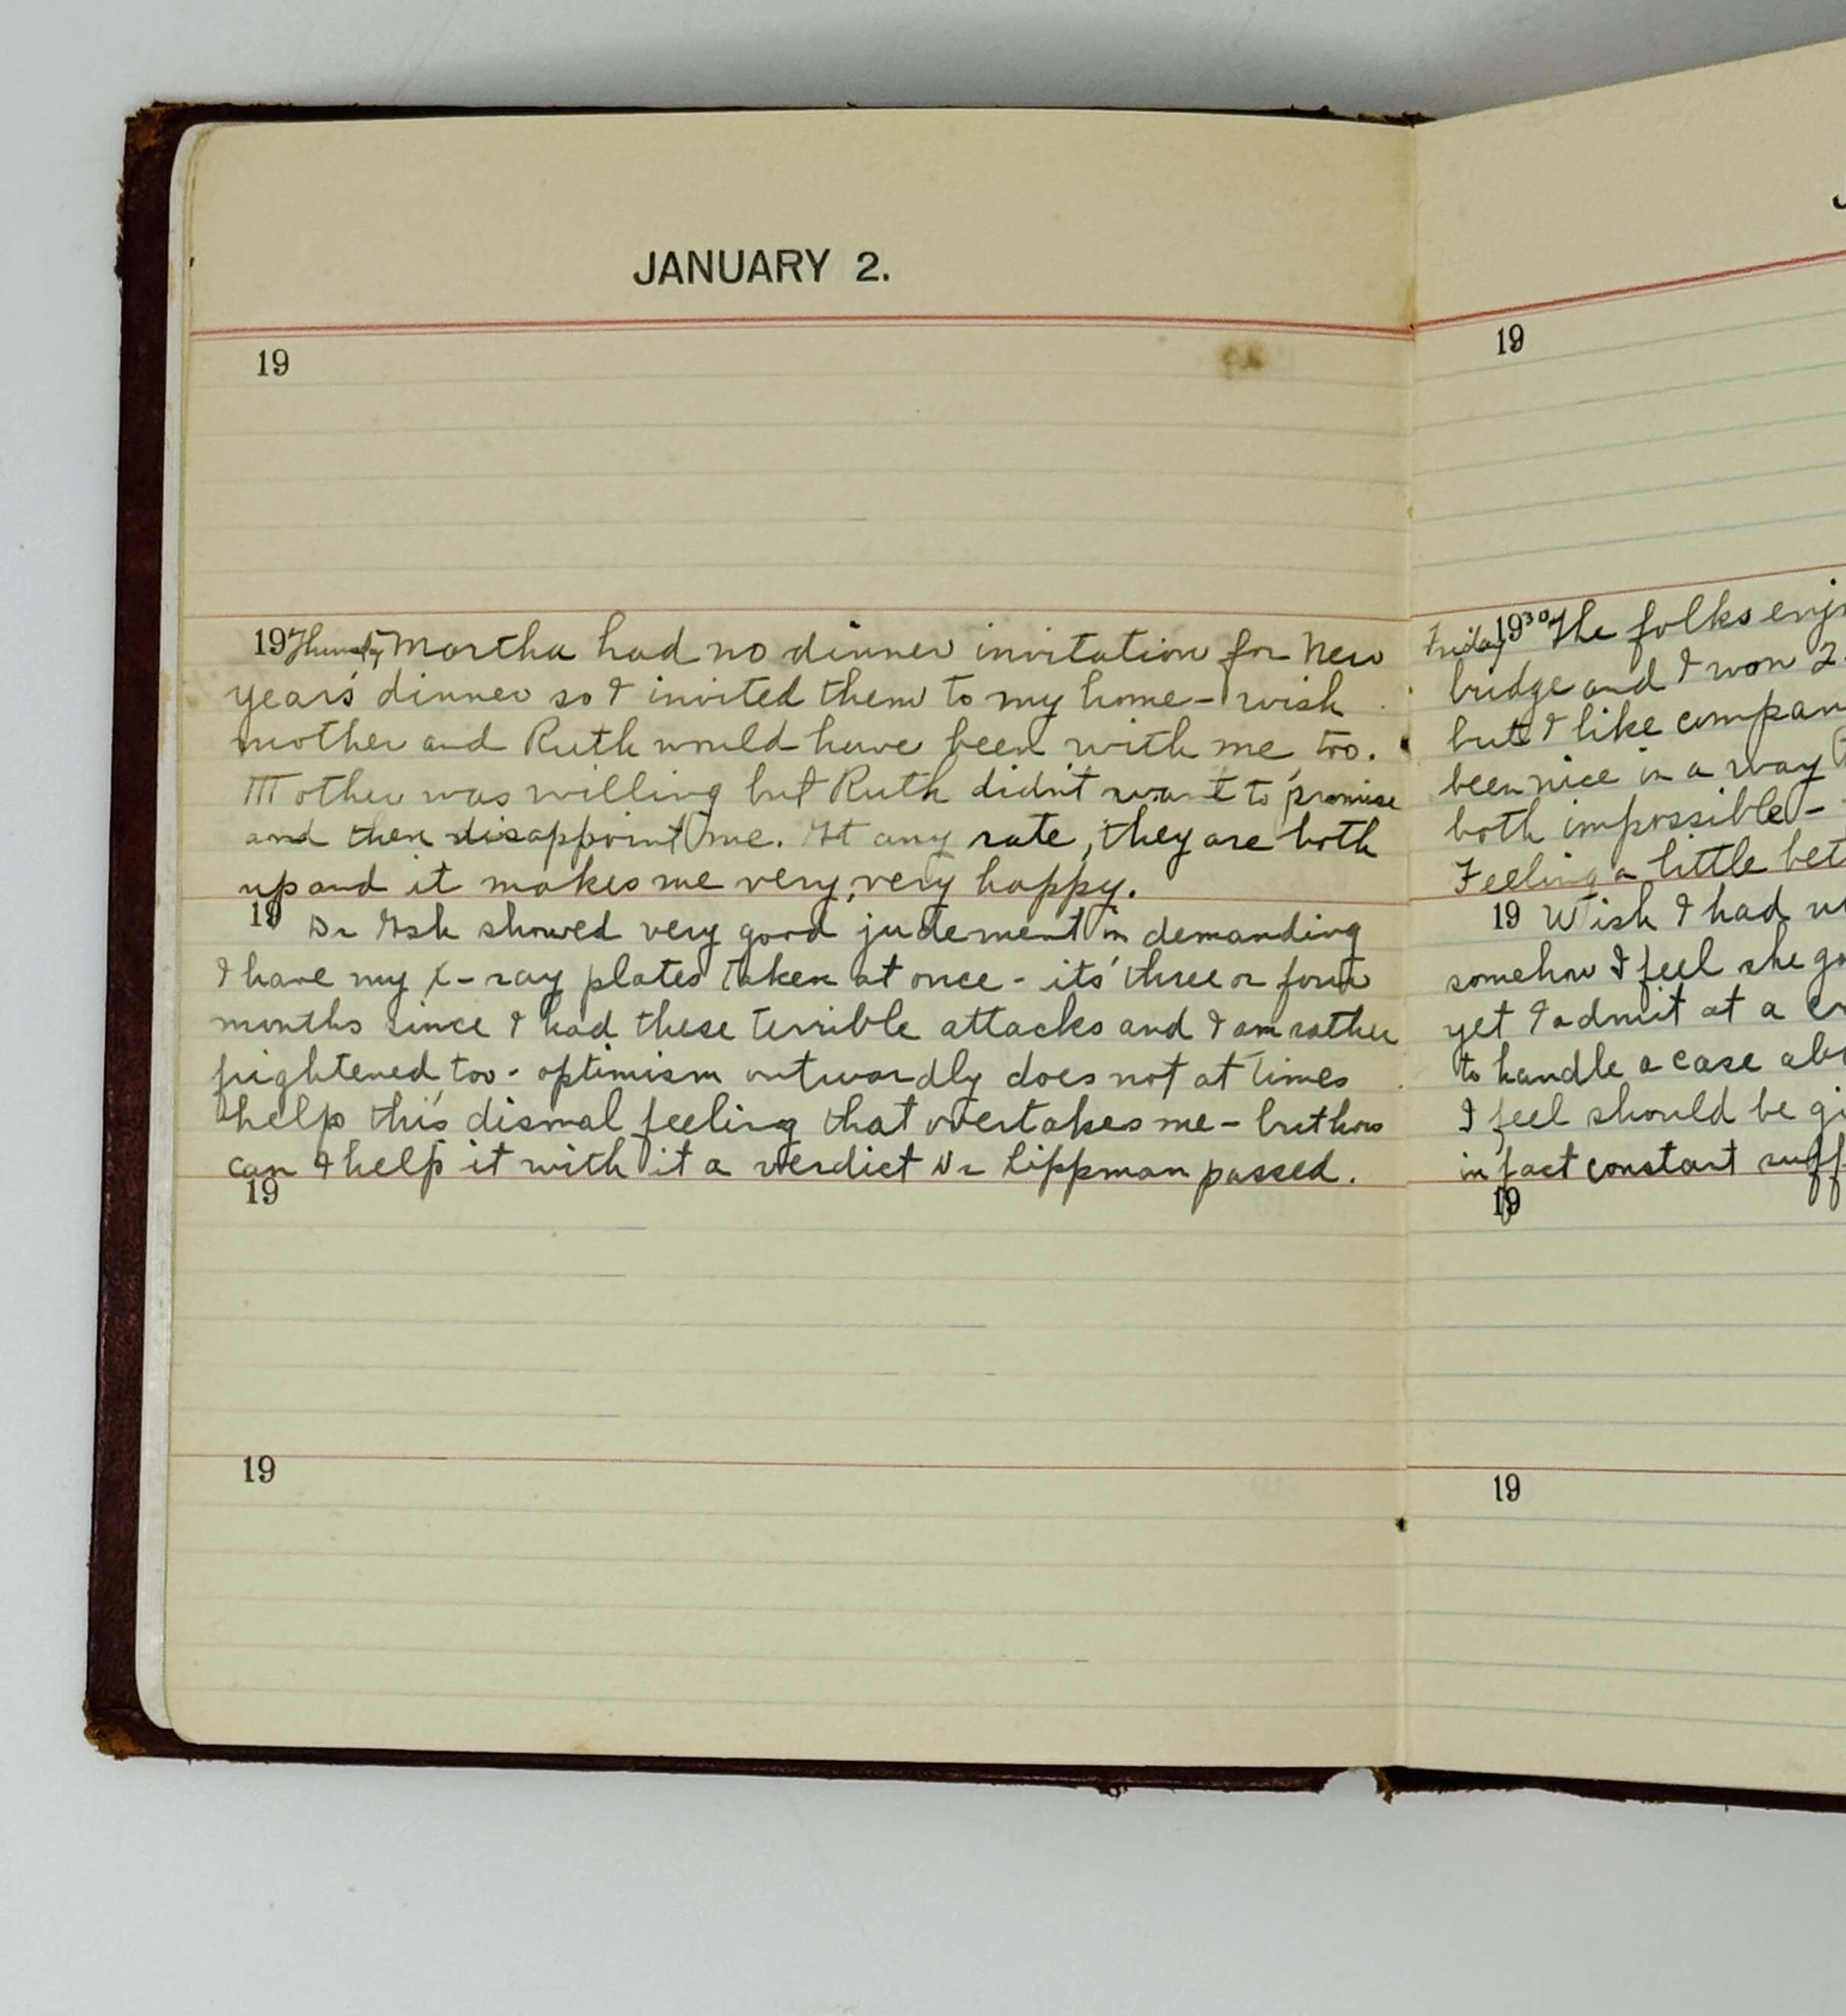 JANUARY 2.
19
19 Thursday Martha had no dinner invitation for New
years dinner so I invited them to my home - wish
mother and Ruth would have been with me too.
Mother was willing but Ruth didn't want to promise
and then disappoint me. At any rate, they are both
up and it makes me very, very happy.
19 Dr Ash showed very good judement in demanding
I have my x-ray plates taken at once - its three or four
months since I had these terrible attacks and I am rather
frightened too - optimism outwardly does not at times
help this dismal feeling that overtakes me - but how
can I help it with it a verdict Dr Lippman passed.
19
19
19
Friday 1930 The folks enj
bridge and I won 2
but I like compan
been nice in a way
both impossible -
Feeling a little bet
19 Wish I had
somehow I feel she go
yet I admit at a
to handle a case ab
I feel should be gi
in fact constant suff
19
19